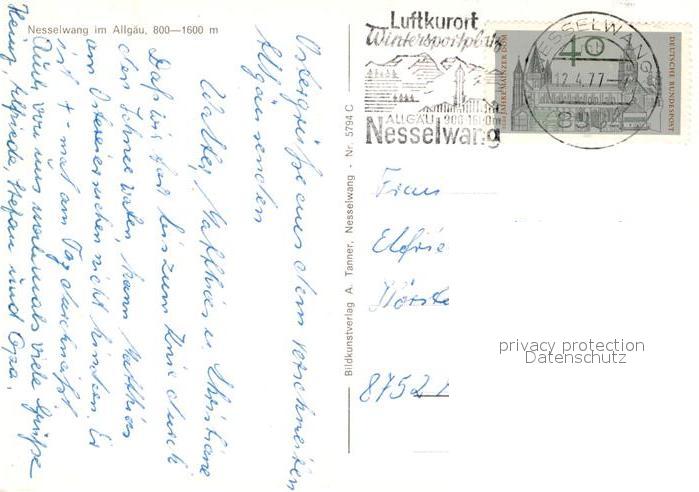 Nesselwang im Allgäu, 800—1600 m
Ostergrüße aus dem verschneiten
Allgäu senden
Walter, Matthias u. Christiane
Daß wir fast bis zum Knie durch
den Schnee waten, kann Matthias
am Ostereiersuchen nicht hindern. Er
ist 4-mal am Tag durchnäßt
Auch von uns nochmals viele Grüße
Heinz, Elfriede, Stefan und Opa.
Bildkunstverlag A. Tanner, Nesselwang - Nr. 5794 C
Luftkurort
Wintersportplatz
ALLGÄU 900-1600m
Nesselwang
NESSELWANG
12.4.77
40
1000 JAHRE MAINZER DOM
DEUTSCHE BUNDESPOST
Frau
Elfrie
Wörste
8752
privacy protection
Datenschutz